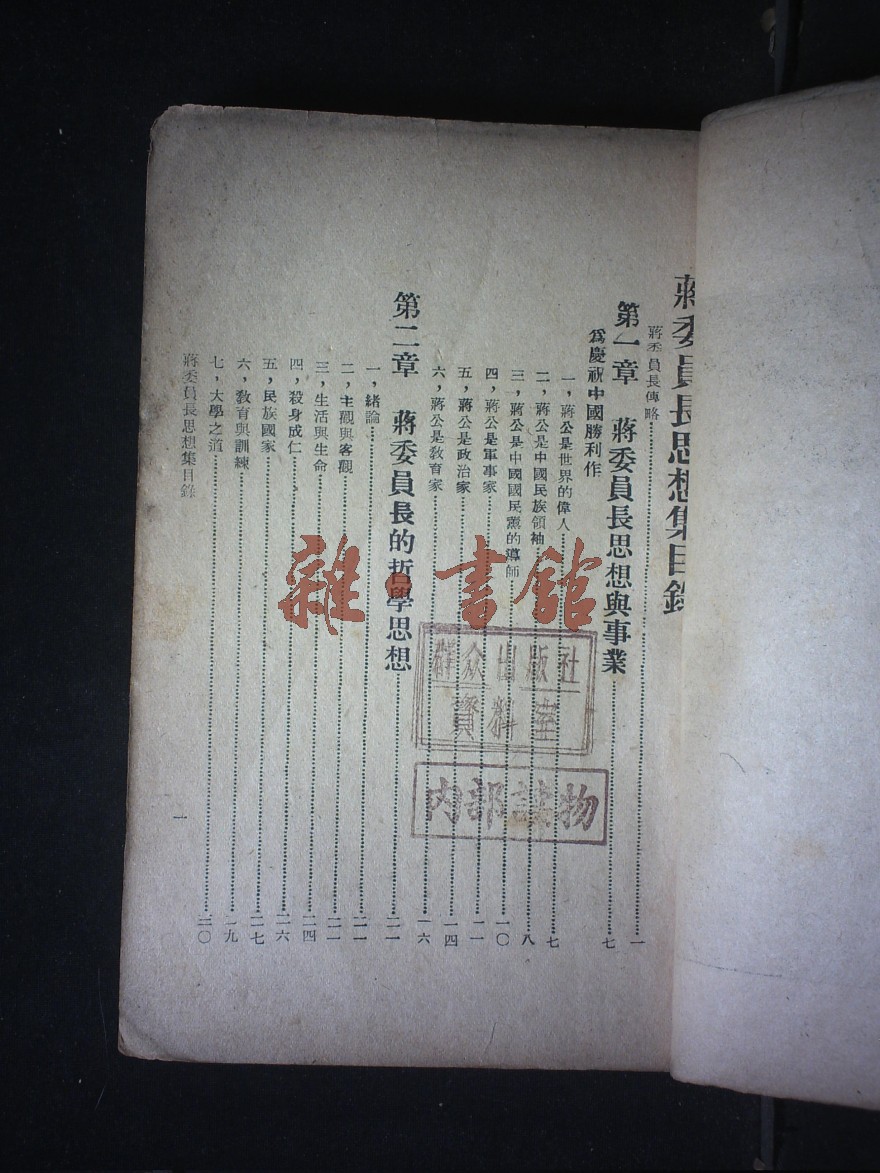 蔣委員長思想集目錄
蔣委員長傳略……一
第一章 蔣委員長思想與事業……七
爲慶祝中國勝利作
一，蔣公是世界的偉人……七
二，蔣公是中國民族領袖……八
三，蔣公是中國國民黨的導師……一〇
四，蔣公是軍事家……一一
五，蔣公是政治家……一四
六，蔣公是敎育家……一六
第二章 蔣委員長的哲學思想……二一
一，緒論……二一
二，主觀與客觀……二二
三，生活與生命……二四
四，殺身成仁……二六
五，民族國家……二七
六，敎育與訓練……二九
七，大學之道……三〇
蔣委員長思想集目錄
一
雜·書館
群众出版社
資料室
内部讀物